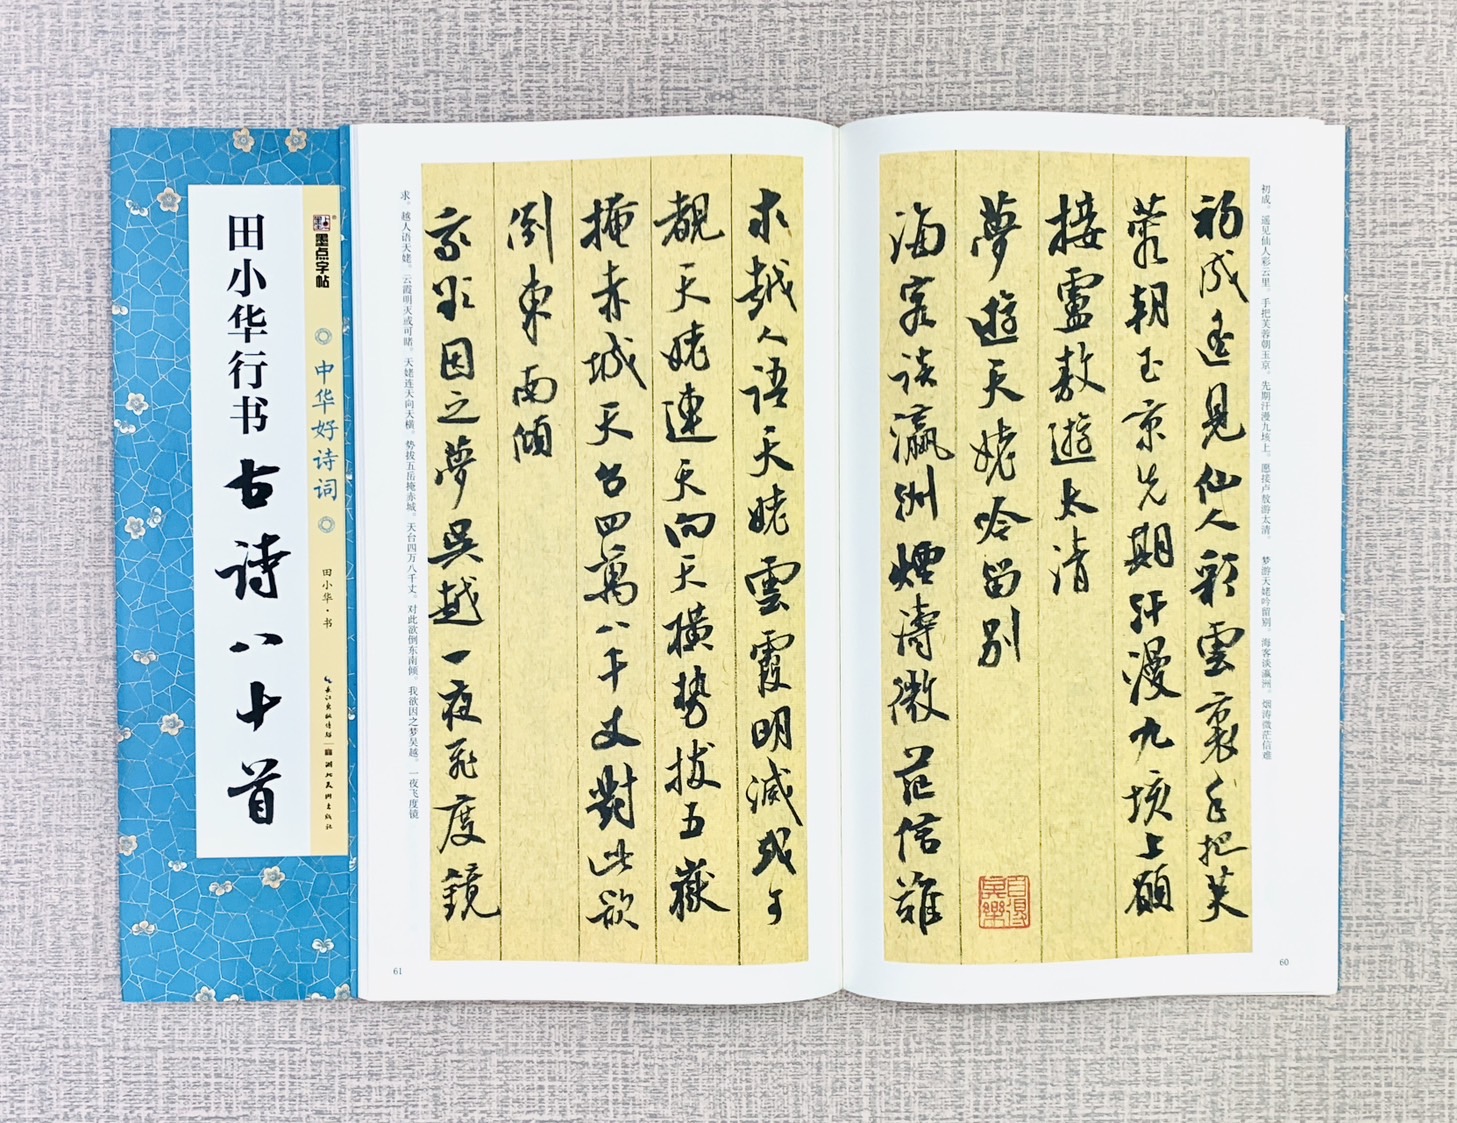 初成。遥见仙人彩云里。手把芙蓉朝玉京。先期汗漫九垓上。愿接卢敖游太清。 梦游天姥吟留别。海客谈瀛洲。烟涛微茫信难
初成遙見仙人彩雲裏手把芙
蓉朝玉京先期汗漫九垓上願
接盧敖遊太清
夢遊天姥吟留別
海客談瀛洲煙濤微茫信難
60
求越人語天姥雲霞明滅或可
覩天姥連天向天橫勢拔五嶽
掩赤城天台四萬八千丈對此欲
倒東南傾
我欲因之夢吳越一夜飛度鏡
求。越人语天姥。云霞明灭或可睹。天姥连天向天横。势拔五岳掩赤城。天台四万八千丈。对此欲倒东南倾。我欲因之梦吴越。一夜飞度镜
61
墨点字帖
中华好诗词
田小华·书
长江出版传媒 湖北美术出版社
田小华行书古诗八十首